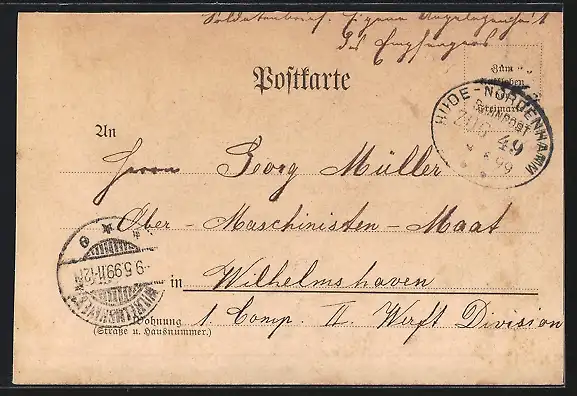 Soldatenbrief. Eigene Angelegenheit
des Empfängers
Zum
Aufkleben
der
Freimarke
Postkarte
HUDE-NORDENHAMM
BAHNPOST
ZUG 49
99
An
Herrn Georg Müller
Ober-Maschinisten-Maat
in Wilhelmshaven
WILHELMSHAVEN
9.5.99.11-12N
Wohnung
(Straße u. Hausnummer.)
1. Comp. II. Werft Division